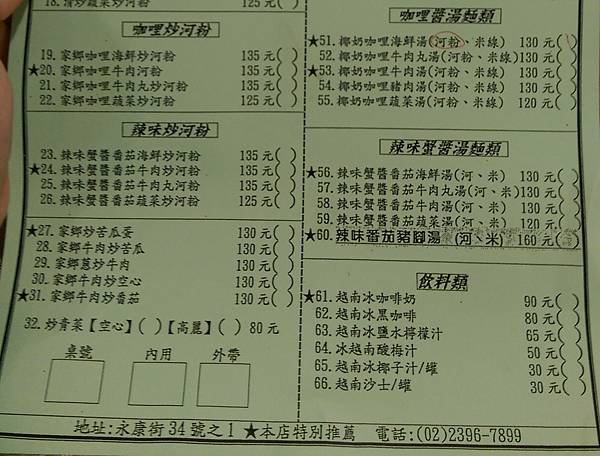 18. 清炒蔬菜炒河粉 125 元( )
咖哩炒河粉
19. 家鄉咖哩海鮮炒河粉 135 元( )
★20. 家鄉咖哩牛肉河粉 135 元( )
21. 家鄉咖哩牛肉丸炒河粉 135 元( )
22. 家鄉咖哩蔬菜炒河粉 125 元( )
辣味炒河粉
23. 辣味蟹醬番茄海鮮炒河粉 135 元( )
★24. 辣味蟹醬番茄牛肉炒河粉 135 元( )
25. 辣味蟹醬番茄牛肉丸炒河粉 135 元( )
26. 辣味蟹醬番茄蔬菜炒河粉 125 元( )
★27. 家鄉炒苦瓜蛋 130 元( )
28. 家鄉牛肉炒苦瓜 130 元( )
29. 家鄉蔥炒牛肉 130 元( )
30. 家鄉牛肉炒空心 130 元( )
★31. 家鄉牛肉炒番茄 130 元( )
32. 炒青菜【空心】( )【高麗】( ) 80 元
桌號 內用 外帶
咖哩醬湯麵類
★51. 椰奶咖哩海鮮湯(河粉、米線) 130 元( )
52. 椰奶咖哩牛肉丸湯(河粉、米線)130 元( )
★53. 椰奶咖哩牛肉湯(河粉、米線) 130 元( )
54. 椰奶咖哩豬肉湯(河粉、米線) 130 元( )
55. 椰奶咖哩蔬菜湯(河粉、米線) 120 元( )
辣味蟹醬湯麵類
★56. 辣味蟹醬番茄海鮮湯(河、米) 130 元( )
57. 辣味蟹醬番茄牛肉丸湯(河、米)130 元( )
58. 辣味蟹醬番茄牛肉湯(河、米) 130 元( )
59. 辣味蟹醬番茄蔬菜湯(河、米) 120 元( )
★60. 辣味番茄豬腳湯 (河、米) 160 元( )
飲料類
★61. 越南冰咖啡奶 90 元( )
62. 越南冰黑咖啡 80 元( )
63. 越南冰鹽水檸檬汁 65 元( )
64. 冰越南酸梅汁 50 元( )
65. 越南冰椰子汁/罐 30 元( )
66. 越南沙士/罐 30 元( )
地址:永康街 34 號之 1 ★本店特別推薦 電話:(02)2396-7899